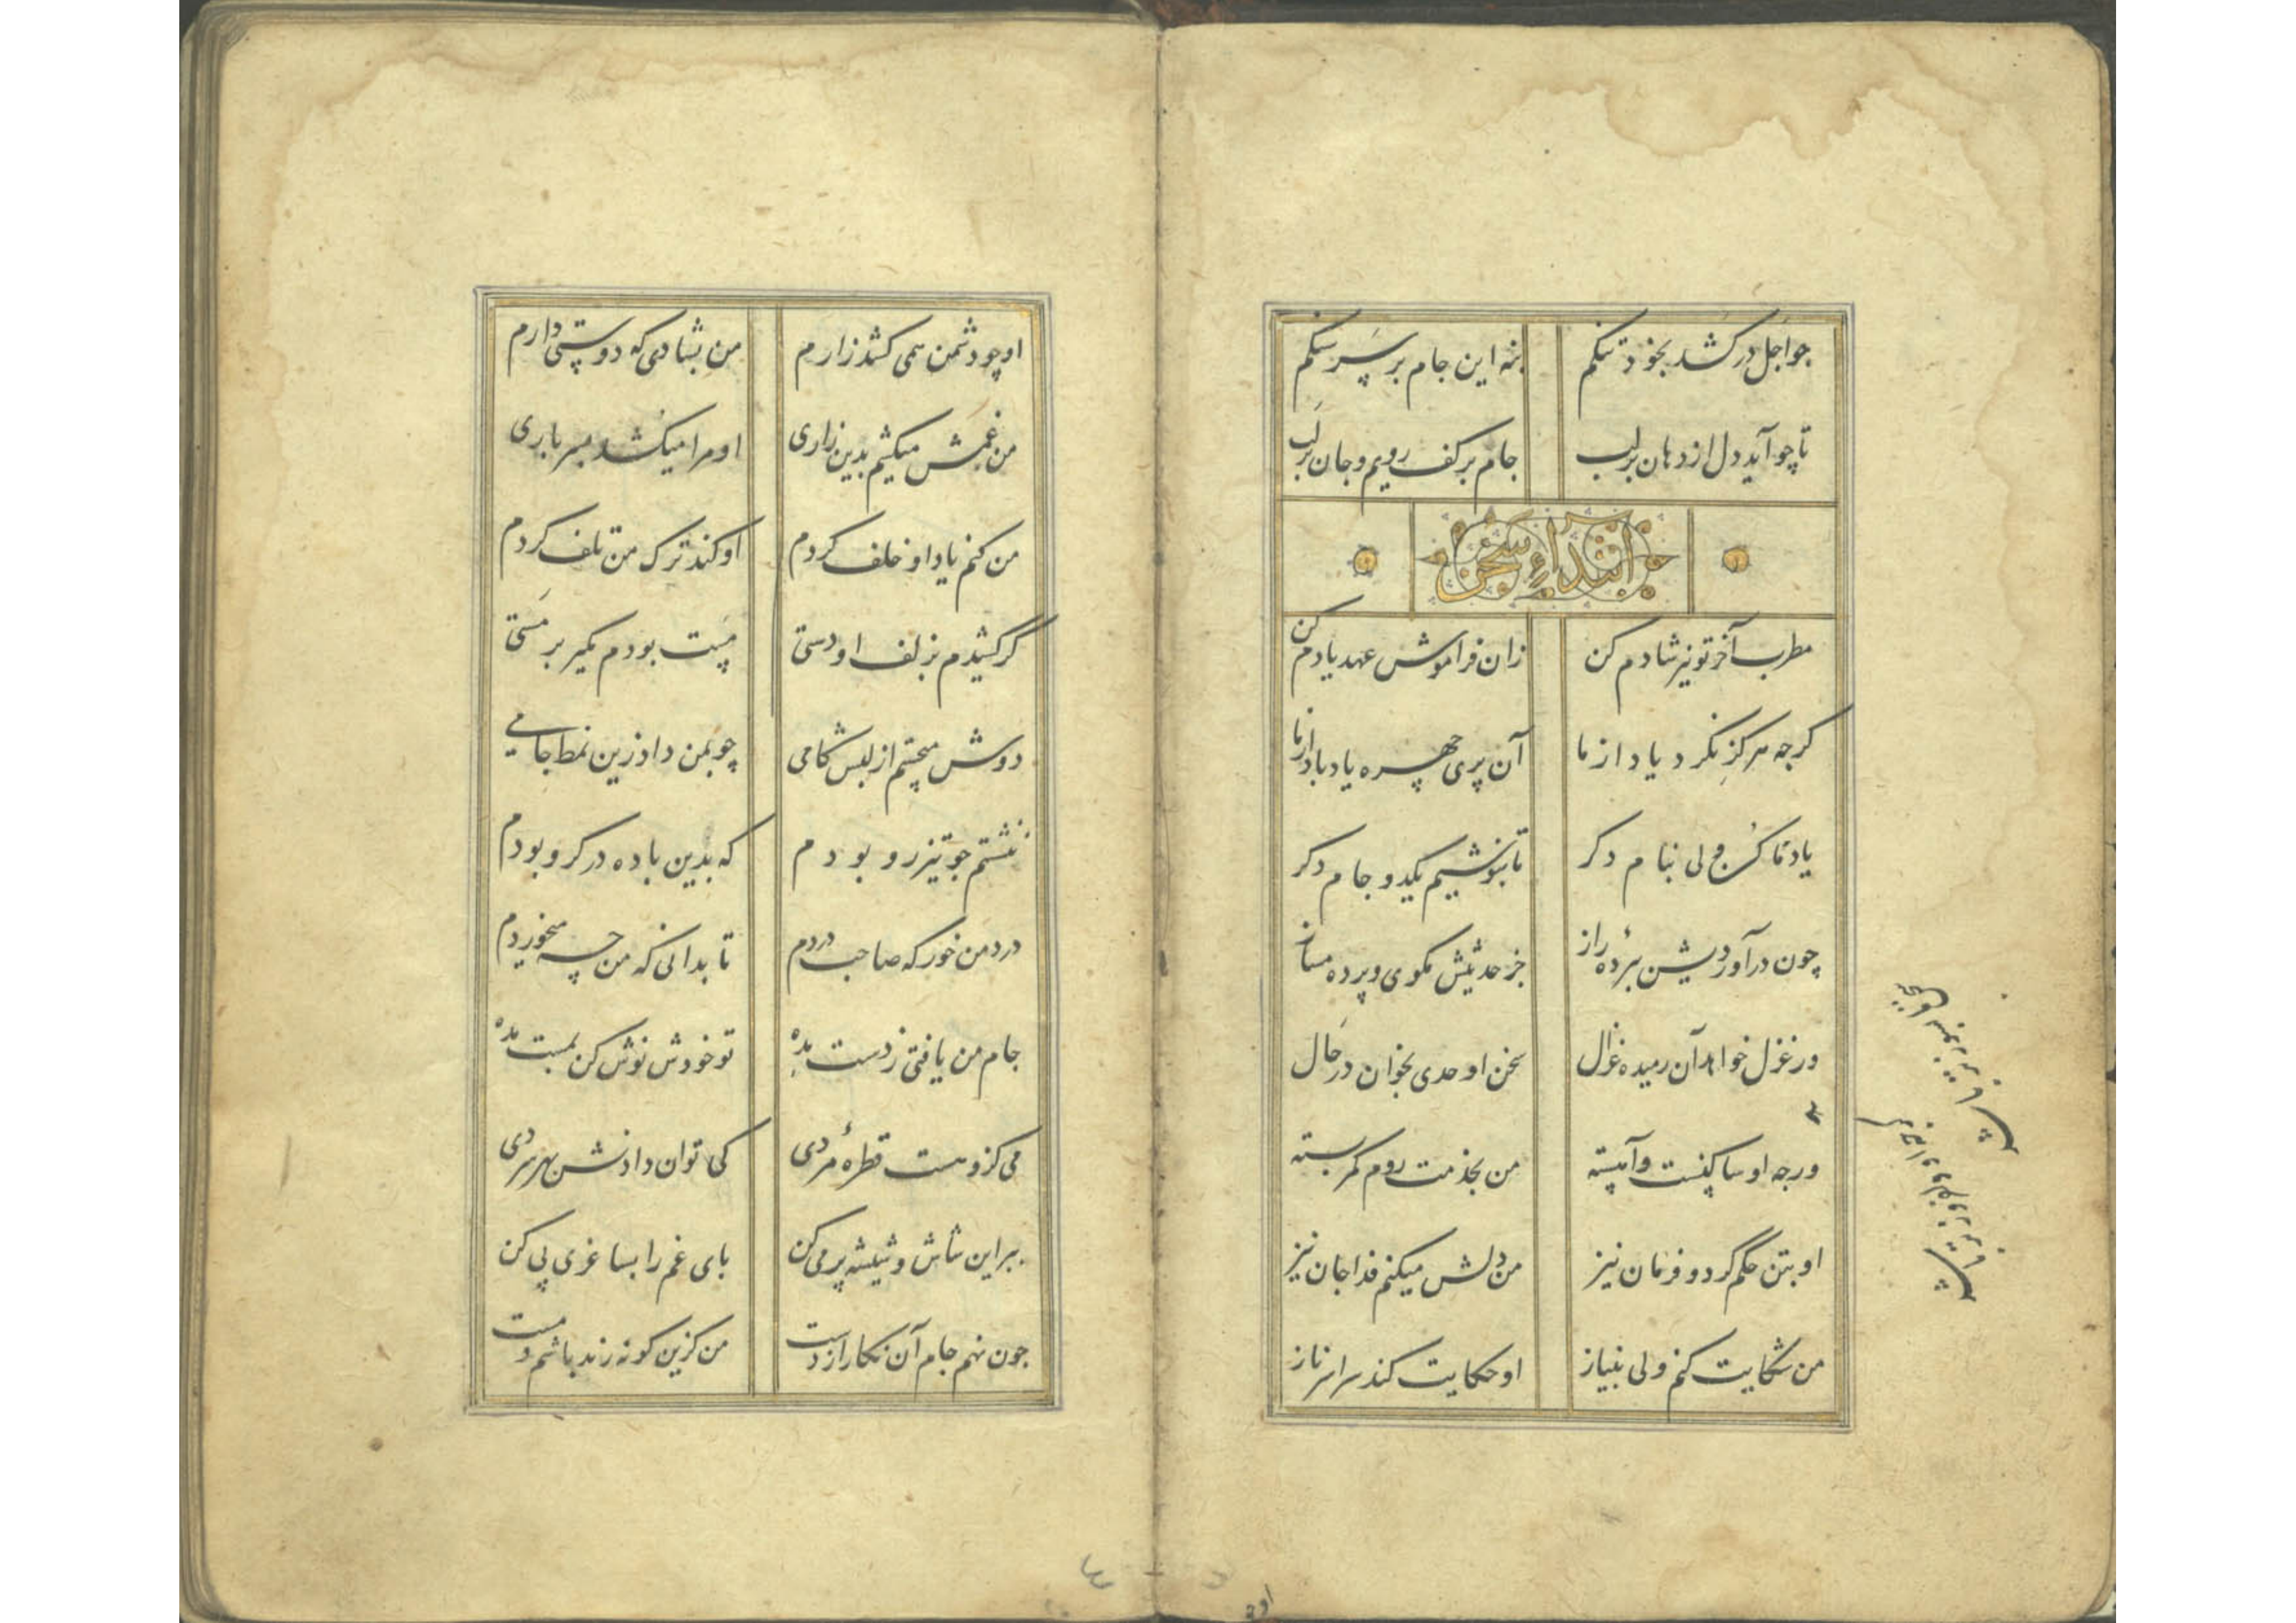 چو اجل درکشد بخود تنگم بنه این جام بر سر سنگم
تا چو آید دل از دهان بر لب جام بر کف رویم و جان بر لب
ابتداء سخن
مطرب آخر تو نیز شادم کن زان فراموش عهد یادم کن
کرجه هرکز نکرد یاد از ما آن پری چهره یاد باد از ما
یاد ما کن ولی بنام دکر تا بنوشیم یکدو جام دکر
چون درآوردیش ببردهٔ راز جز حدیثش مکوی و پرده مساز
ور غزل خواهد آن رمیده غزال سخن اوحدی بخوان در حال
ورجه او ساکنست و آهسته من بخدمت روم کمر بسته
او بتن حکم کرد و فرمان نیز من دلش میکنم فدا جان نیز
من شکایت کنم ولی بنیاز او حکایت کند سراسر ناز
او چو دشمن همی کشد زارم من بشادی که دوستی دارم
من غمش میکشم بدین زاری او مرا میکشد بسر باری
من کنم یاد او خلف کردم او کند ترک من تلف کردم
گر کشیدم بزلف او دستی مست بودم مکیر بر مستی
دوش میجستم از لبش کامی چو بمن داد زین نمط جامی
ننشستم جو تیزرو بودم که بدین باده در کرو بودم
درد من خور که صاحب دردم تا بدانی که من چه میخوردم
جام من یافتی ز دست مده تو خودش نوش کن بمست مده
می کزو هست قطرهٔ مردی کی توان دادنش بهر سردی
ببر این شاش و شیشه پر می کن بای غم را بساغری پی کن
جون نهم جام آن نکار از دست من کزین کونه رند باشم و مست